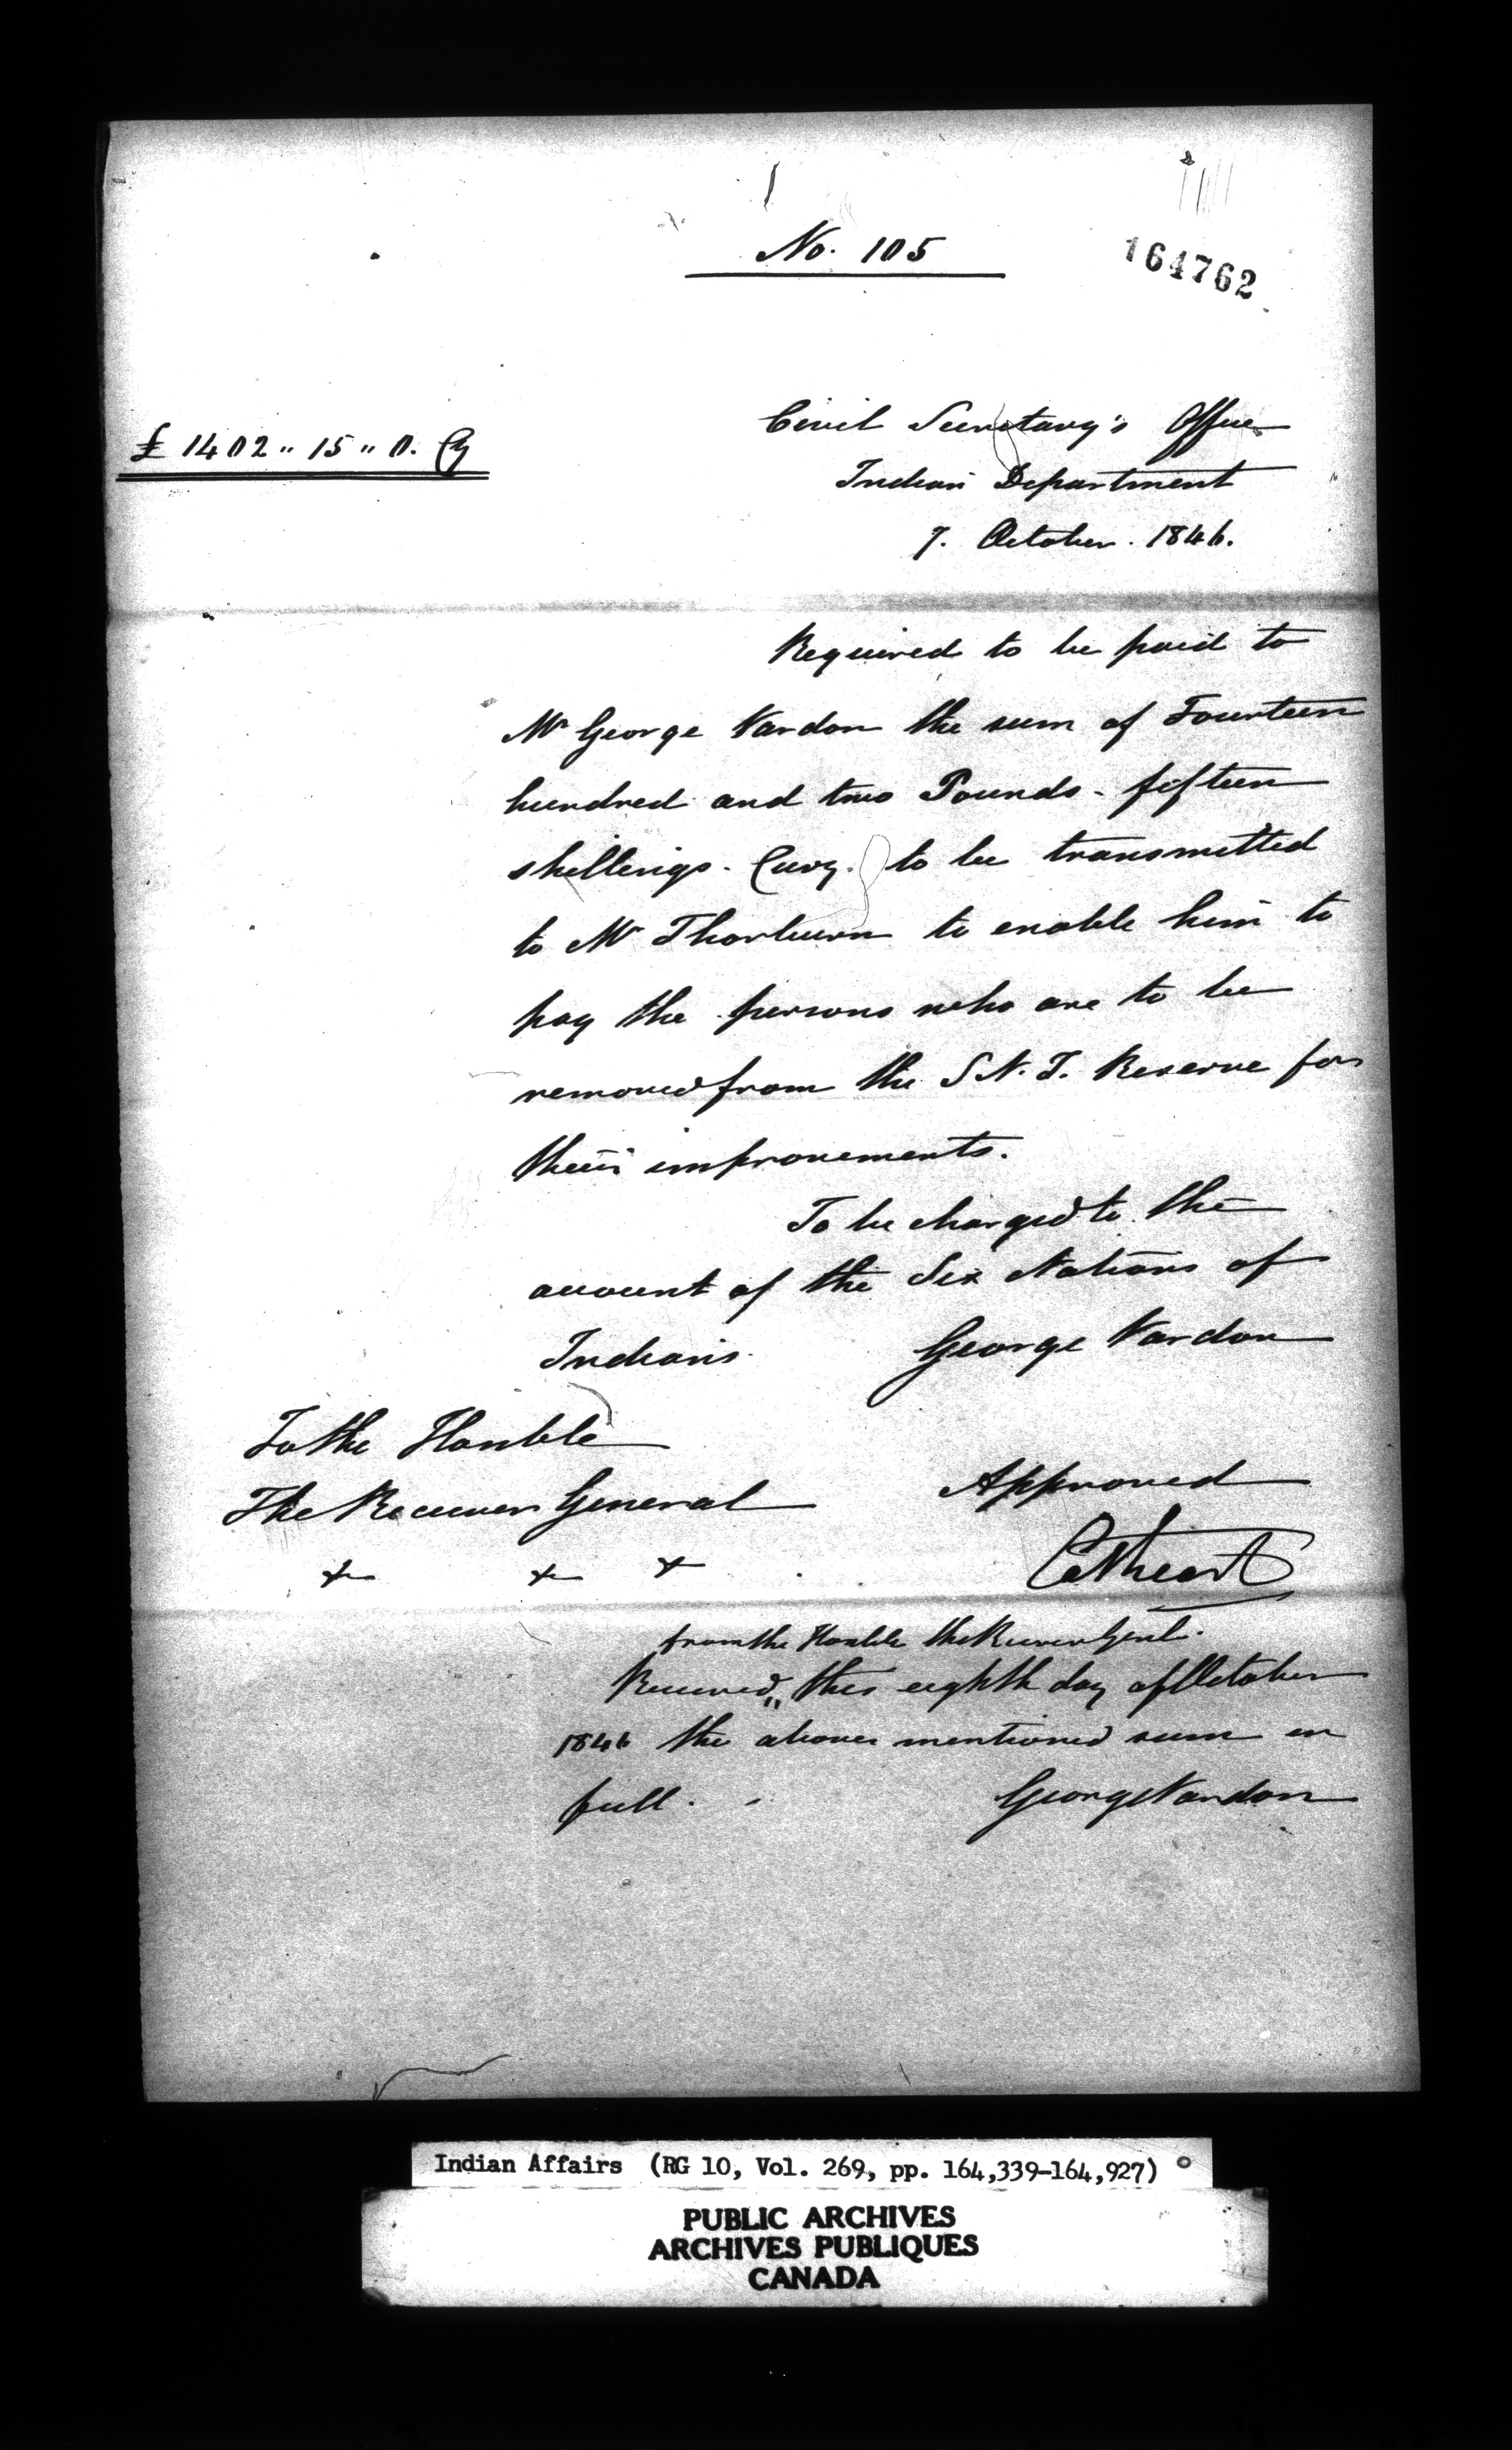 No. 105
164762
£ 1402 " 15 " 0. Cy
Civil Secretary's Office
Indian Department
7. October. 1846.
Required to be paid to
Mr George Vardon the sum of Fourteen
hundred and two Pounds - fifteen
shillings. Curcy. to be transmitted
to Mr Thorburn to enable him to
pay the persons who are to be
removed from the S. N. I. Reserve for
their improvements.
To be charged to the
account of the Six Nations of
Indians.
George Vardon
To the Honble
The Receiver General
+ + +
Approved
Cathcart
from the Honble the Receiver Genl.
Received " this eighth day of October
1846 the above mentioned sum in
full.
George Vardon
Indian Affairs (RG 10, Vol. 269, pp. 164,339-164,927)
PUBLIC ARCHIVES
ARCHIVES PUBLIQUES
CANADA